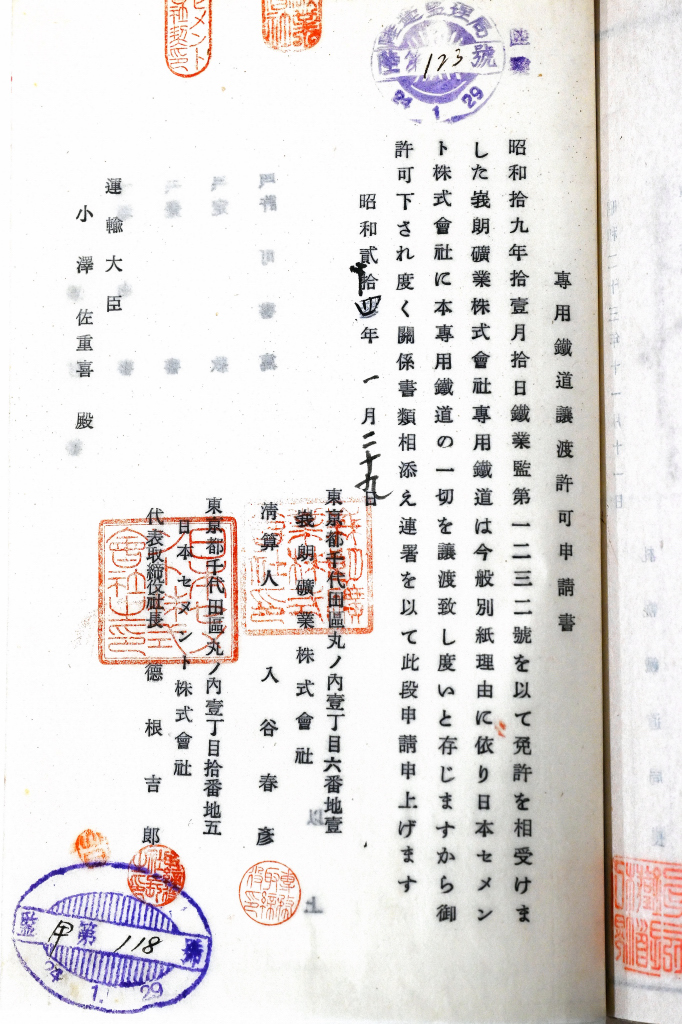 專用鐵道讓渡許可申請書
昭和拾九年拾壹月拾日鐵業監第一二三二號を以て免許を相受けま
した峩朗礦業株式會社專用鐵道は今般別紙理由に依り日本セメン
ト株式會社に本專用鐵道の一切を讓渡致し度いと存じますから御
許可下され度く關係書類相添え連署を以て此段申請申上げます
昭和貳拾四年一月二十九日
東京都千代田區丸ノ內壹丁目六番地壹
峩朗礦業株式會社
淸算人 入谷春彥
東京都千代田區丸ノ內壹丁目拾番地五
日本セメント株式會社
代表取締役社長 德根吉郎
運輸大臣
小澤佐重喜殿
陸第123號
24.1.29
監甲第118號
24.1.29
セメント